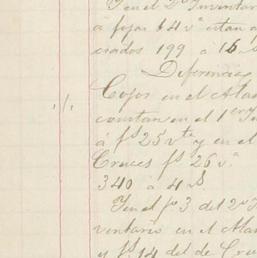 Y en el 2º Inventar
á fojas 14 vª estan a
ciados 199 á 16 $
Diferencias
Cojos en el Ata
constan en el 1er I
á fs 25 vta y en el
Cruces fs 26 vª
340 á 4 $
Y en el fs 3 del 2º I
ventario en el Ata
y fs 14 del de Cru